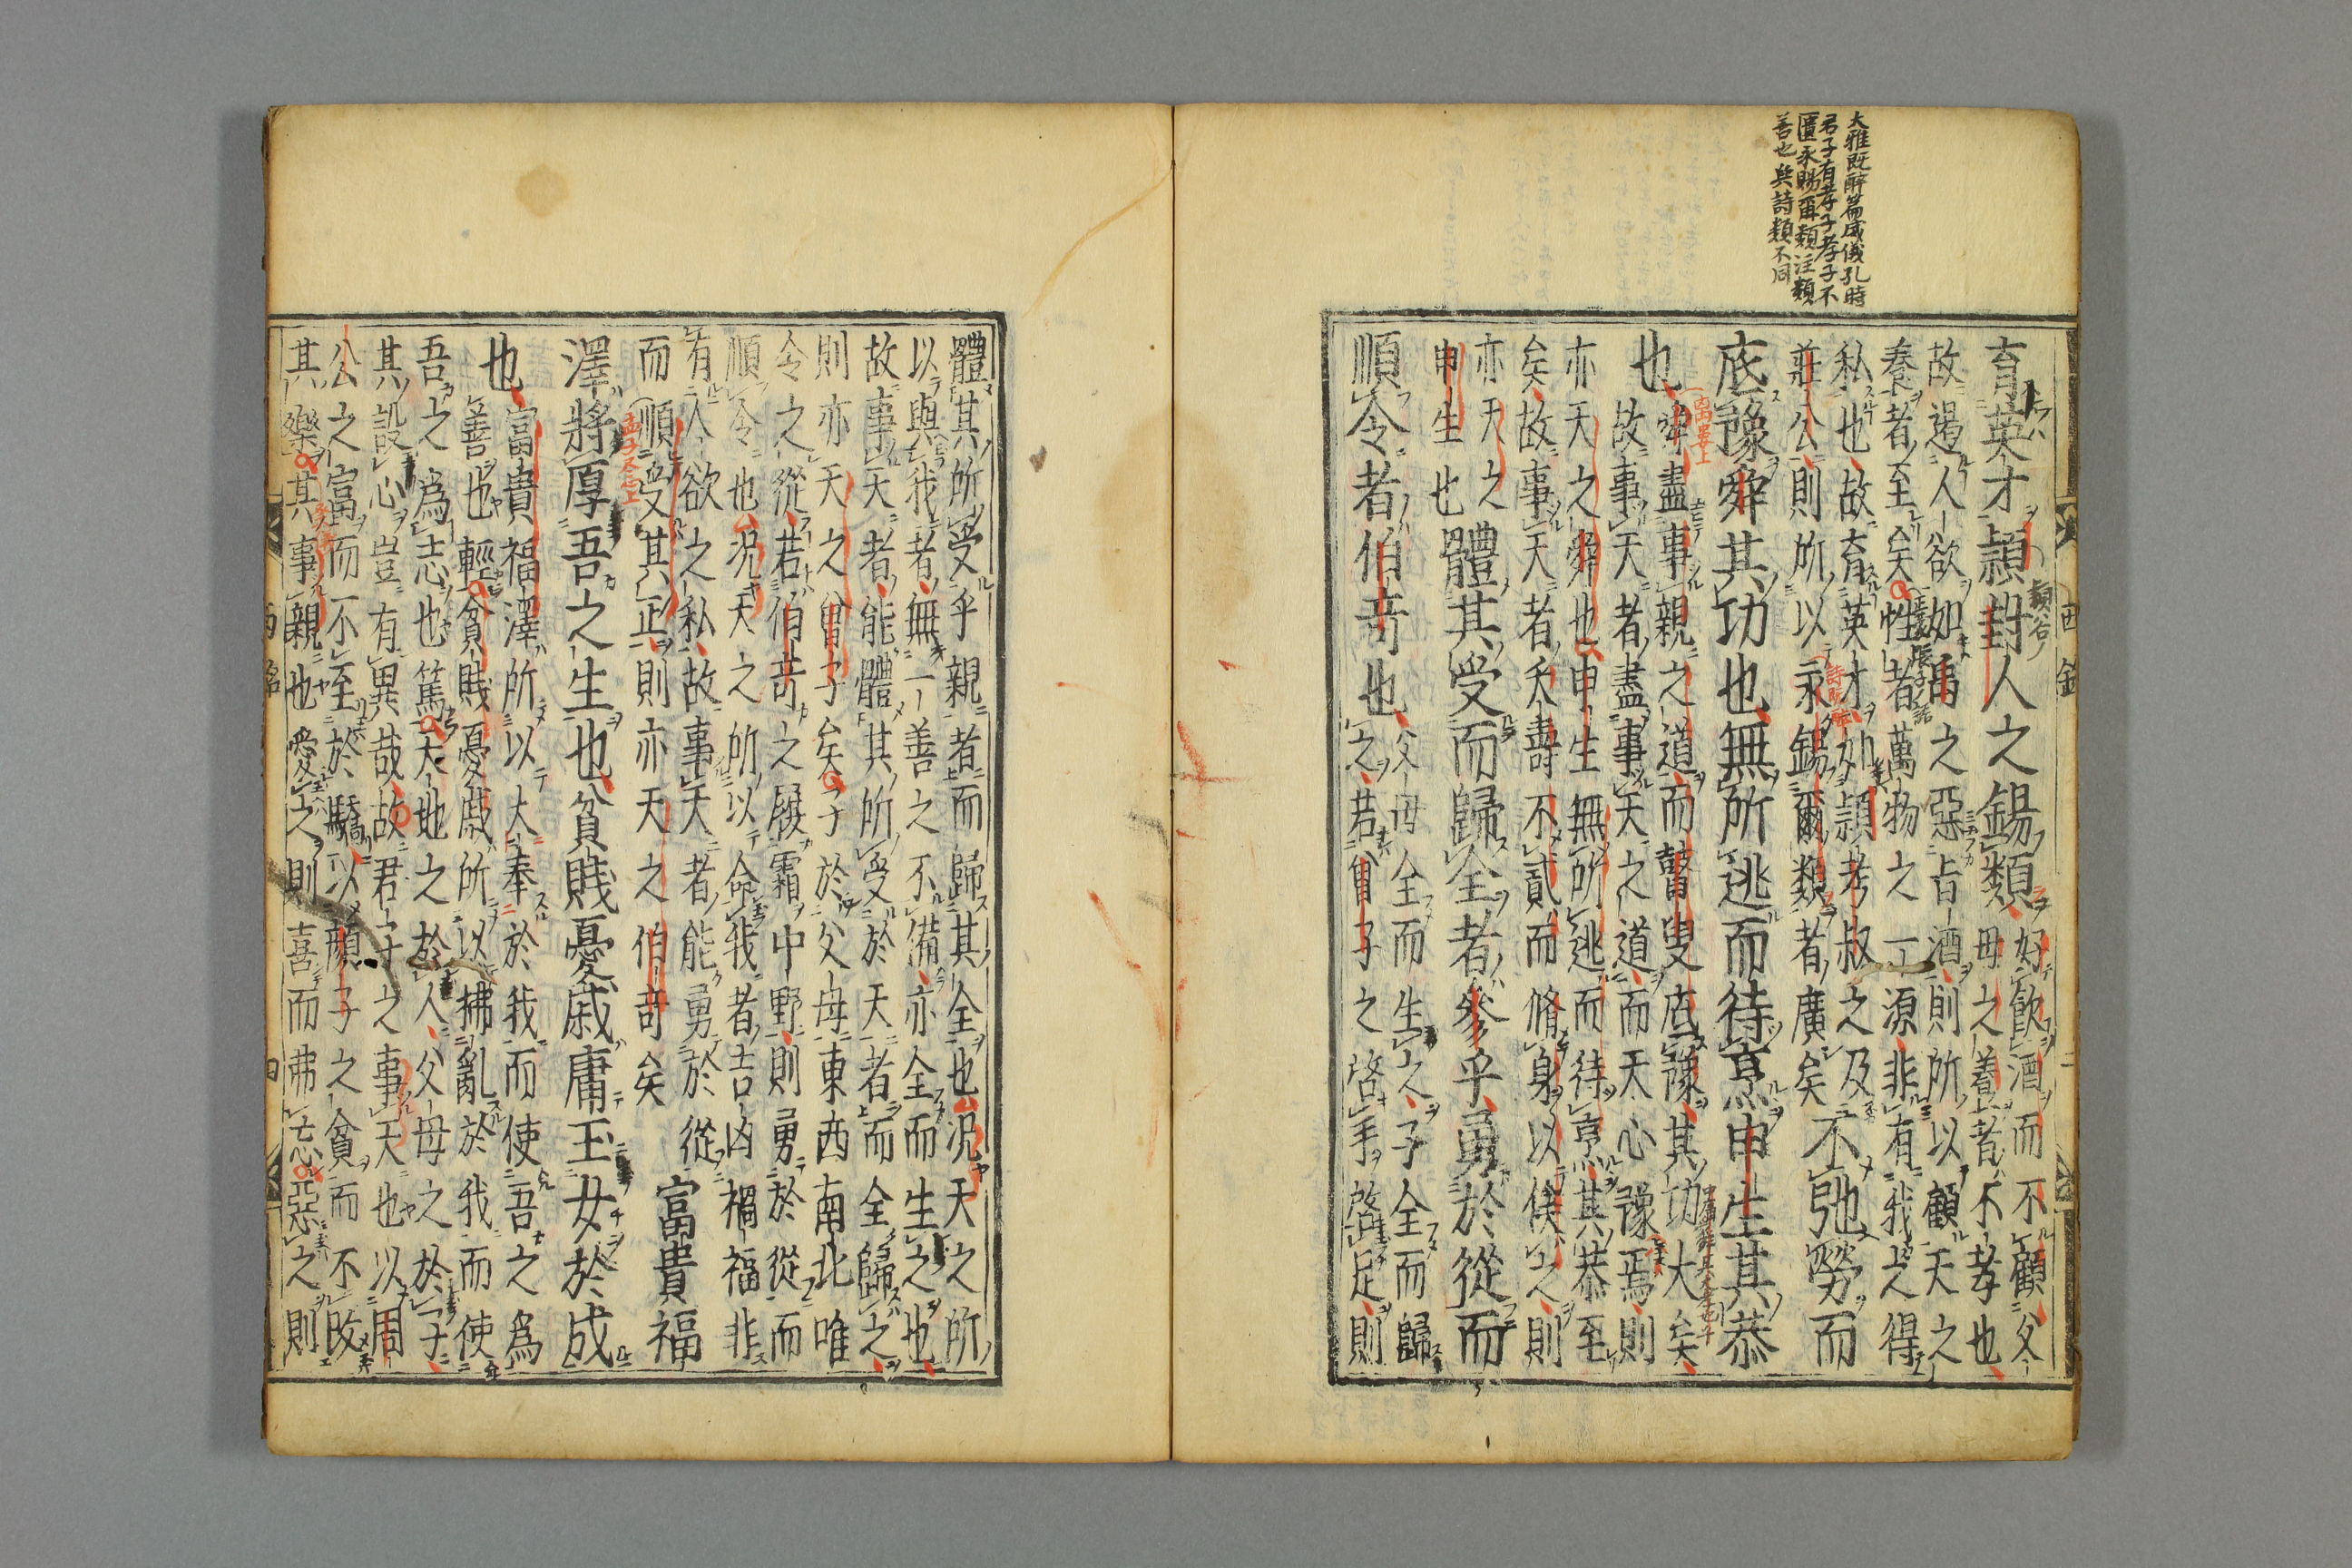 大雅既醉篇威儀孔時
君子有孝子孝子不
匱永賜爾類注類
善也與詩類不同
育英才頴封人之錫類
好飲酒而不顧父
母之養者不孝也
故遏人欲如禹之惡旨酒則所以顧天之
養者至矣性者萬物之一源非有我之得
私也故育英才如頴考叔之及
莊公則所以永錫爾類者廣矣
不弛勞而
底豫舜其功也無所逃而待烹申生其恭
也
舜盡事親之道而瞽叟底豫其功大矣
故事天者盡事天之道而天心豫焉則
亦天之舜也申生無所逃而待烹其恭至
矣故事天者夭壽不貳而脩身以俟之則
亦天之
申生也
體其受而歸全者參乎勇於從而
順令者伯奇也
父母全而生之子全而歸
之若曾子之啓手啓足則
西銘
體其所受乎親者而歸其全也況天之所
以與我者無一善之不備亦全而生之也
故事天者能體其所受於天者而全歸之
則亦天之曾子矣子於父母東西南北唯
令之從若伯奇之履霜中野則勇於從而
順令也況天之所以命我者吉凶禍福非
有人欲之私故事天者能勇於從
而順受其正則亦天之伯奇矣
富貴福
澤將厚吾之生也貧賤憂戚庸玉女於成
也
富貴福澤所以大奉於我而使吾之爲
善也輕貧賤憂戚所以拂亂於我而使
吾之爲志也篤天地之於人父母之於子
其設心豈有異哉故君子之事天也以周
公之富而不至於驕以顏子之貧而不改
其樂其事親也愛之則喜而弗忘惡之則
西銘